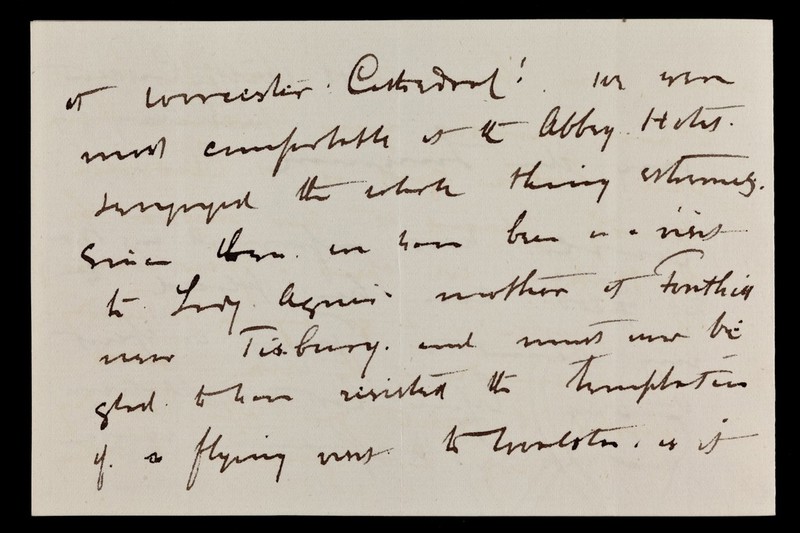 at Worcester Cathedral! we were
most comfortable at the Abbey Hotel.
& enjoyed the whole thing extremely.
Since then we have been on a visit
to Lady Agnes' mother at Fonthill
near Tisbury. and must now be
glad to have resisted the temptation
of a flying visit to as it